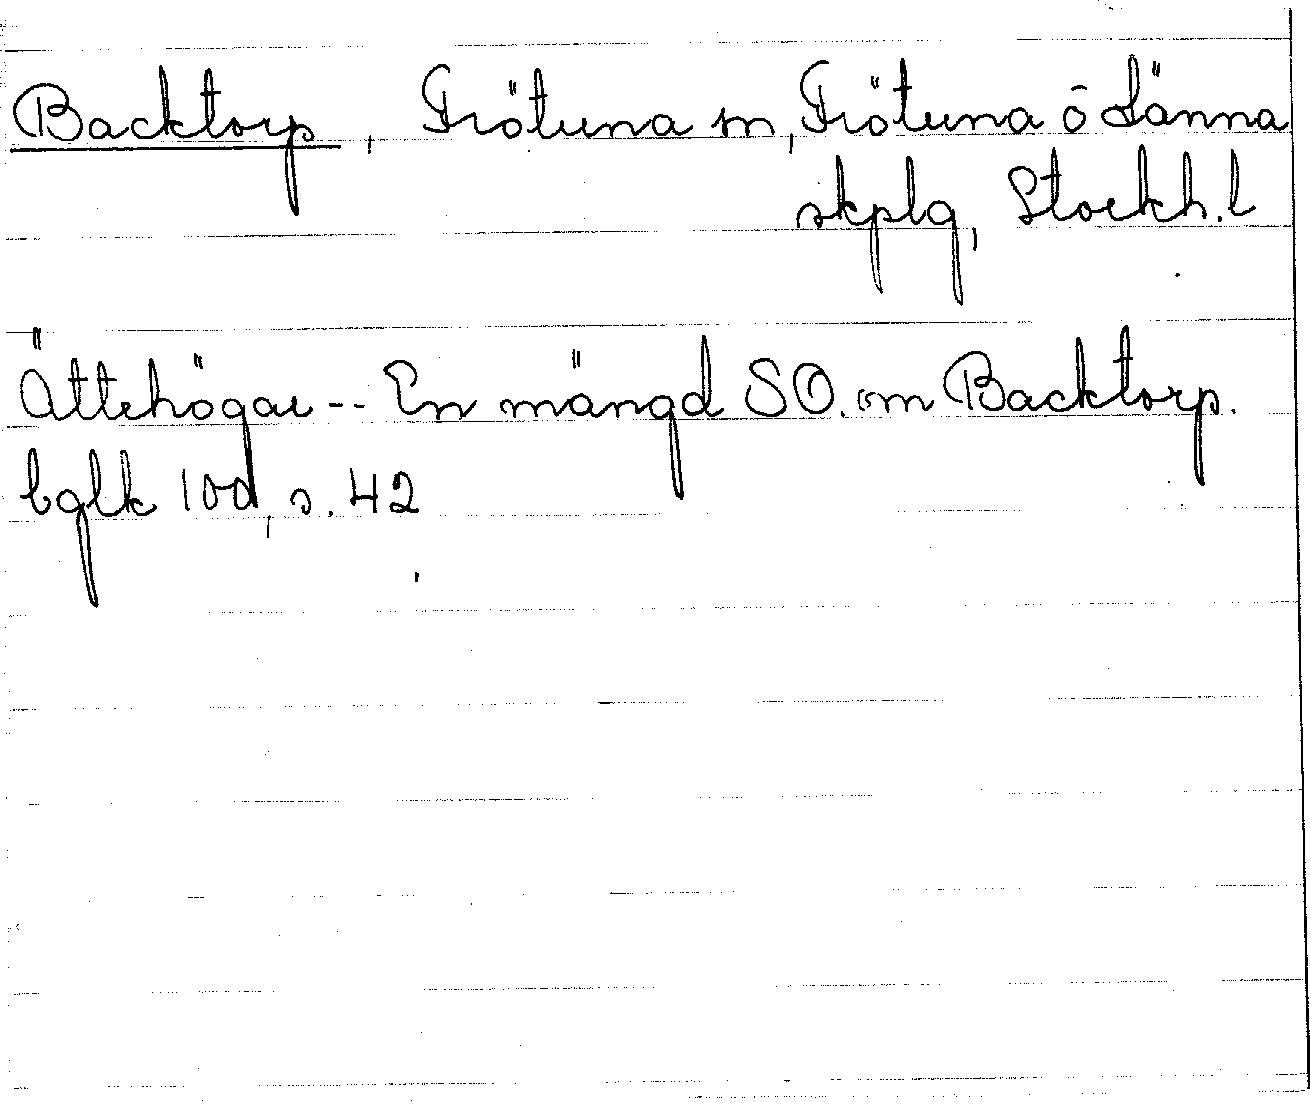 Backtorp, Frötuna sn, Frötuna o Länna
skplg, Stockh. l
Ättehögar -- En mängd SO. om Backtorp.
bglk 100, s. 42